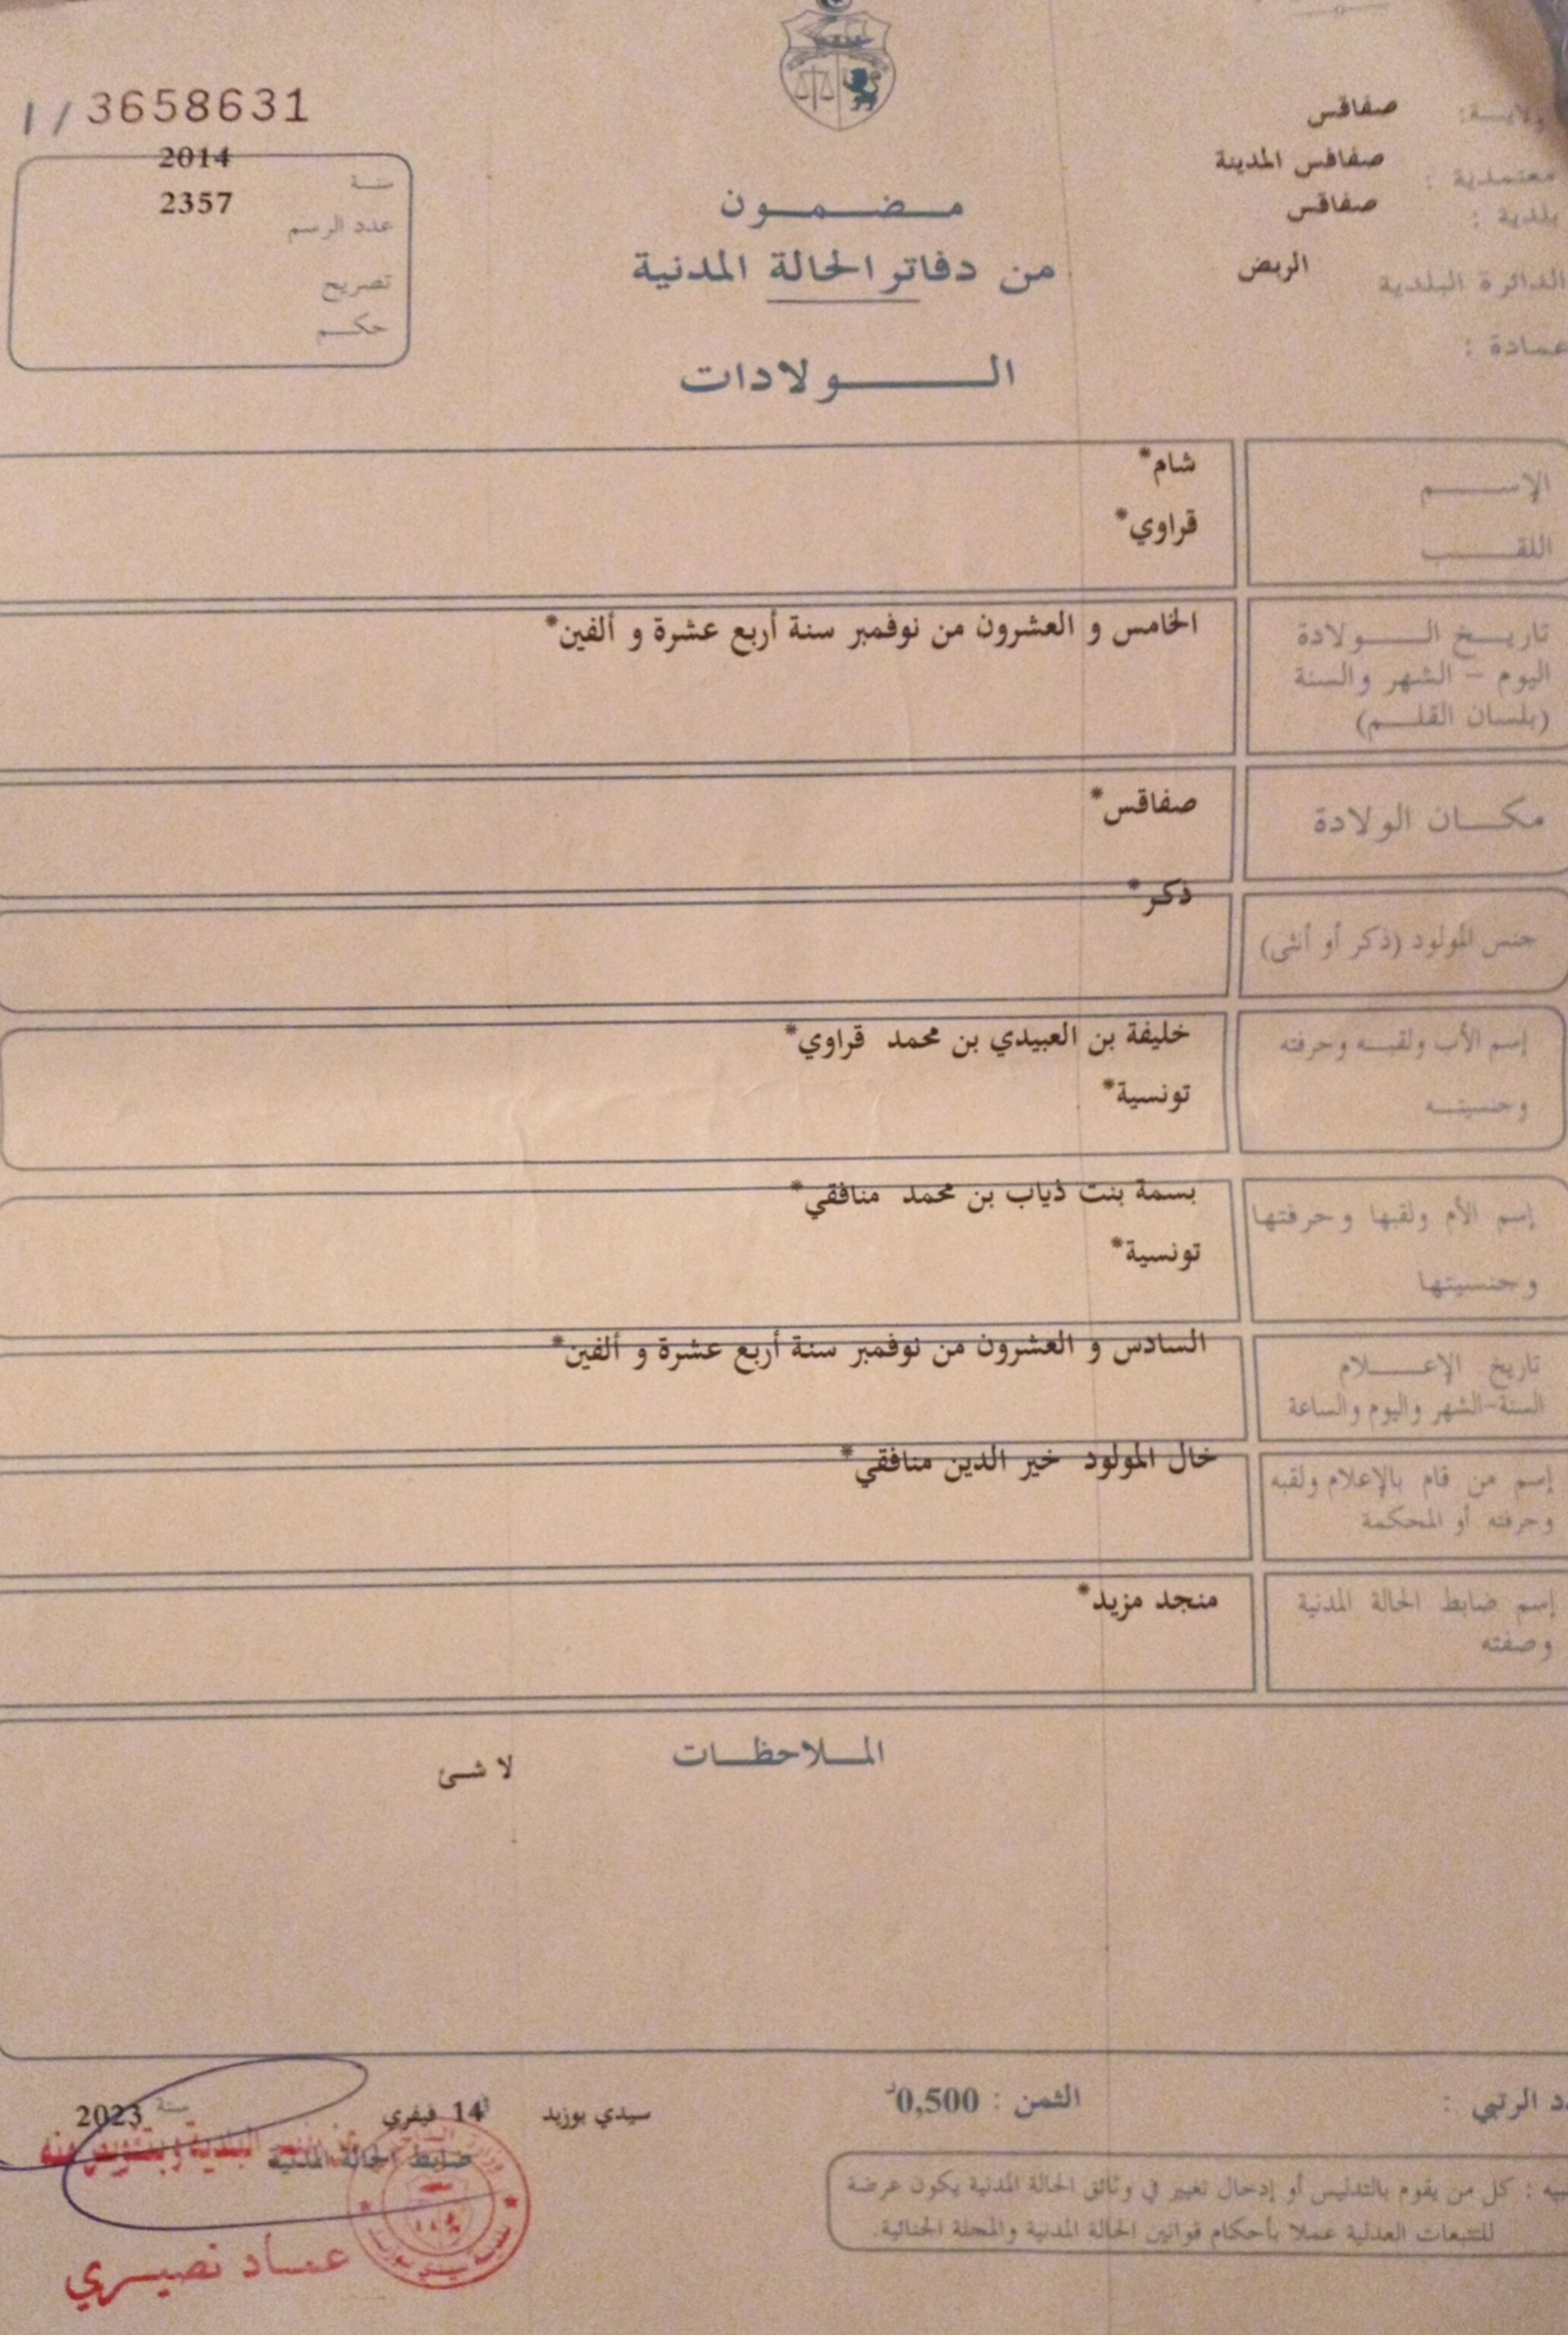 1/3658631
ولاية: صفاقس
معتمدية : صفاقس المدينة
بلدية : صفاقس
الدائرة البلدية الربض
عمادة :
سنة 2014
عدد الرسم 2357
تصريح
حكم
مضمون
من دفاتر الحالة المدنية
الولادات
الإسم شام*
اللقب قراوي*
تاريخ الولادة الخامس و العشرون من نوفمبر سنة أربع عشرة و ألفين*
اليوم - الشهر والسنة
(بلسان القلم)
مكان الولادة صفاقس*
جنس المولود (ذكر أو أنثى) ذكر*
إسم الأب ولقبه وحرفته خليفة بن العبيدي بن محمد قراوي*
وجنسيته تونسية*
إسم الأم ولقبها وحرفتها بسمة بنت ذياب بن محمد منافقي*
وجنسيتها تونسية*
تاريخ الإعلام السادس و العشرون من نوفمبر سنة أربع عشرة و ألفين*
السنة-الشهر واليوم والساعة
إسم من قام بالإعلام ولقبه خال المولود خير الدين منافقي*
وحرفته أو المحكمة
إسم ضابط الحالة المدنية منجد مزيد*
وصفته
الملاحظات
لا شئ
الرتبي :
الثمن : 0,500
سيدي بوزيد 14 فيفري سنة 2023
ضابط الحالة المدنية
البلدية وبتفويض منه
عماد نصيري
كل من يقوم بالتدليس أو إدخال تغيير في وثائق الحالة المدنية يكون عرضة
للتتبعات العدلية عملا بأحكام قوانين الحالة المدنية والمجلة الجنائية.